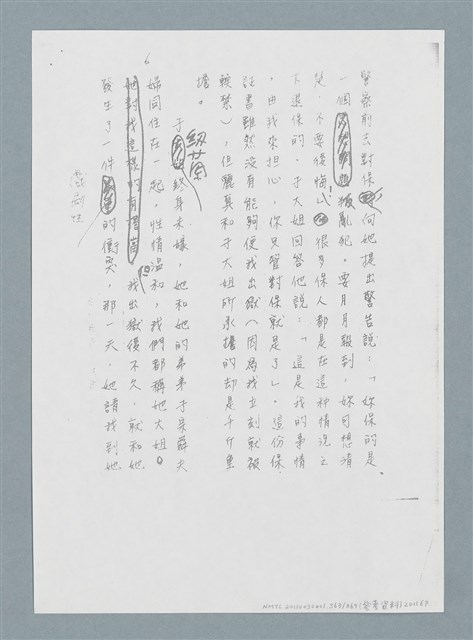 6
警察前去對保,向她提出警告說:「妳保的是
一個叛亂犯,要月月報到,妳可想清
楚,不要後悔」很多保人都是在這種情況之
下退保的。于大姐回答他說:「這是我的事情
,由我來担心,你只管對保就是了」。這份保
証書雖然沒有能夠使我出獄(因為我立刻就被
軟禁),但麗真和于大姐所承擔的却是千斤重
擔。
于紉蘭終身未嫁,她和她的弟弟于吳薛夫
婦同住在一起,性情溫和,我們都稱她大姐。
她對我是這樣的有恩,但我出獄後不久,就和她
發生了一件戲劇性的衝突,那一天,她請我到她